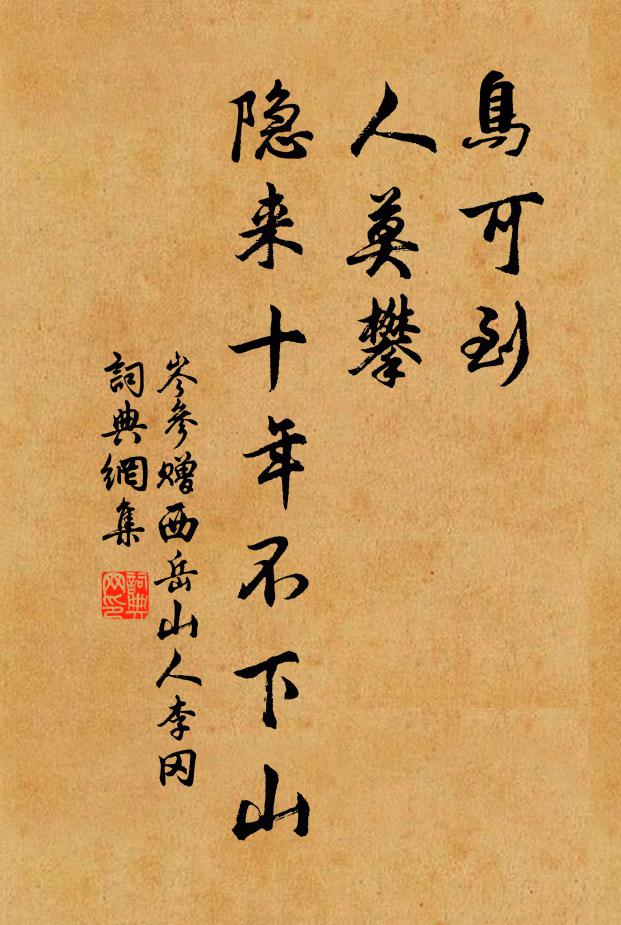 鳥可到
人莫攀
隐来十年不下山
岑參赠西岳山人李冈
詞典網集
詞典
网印